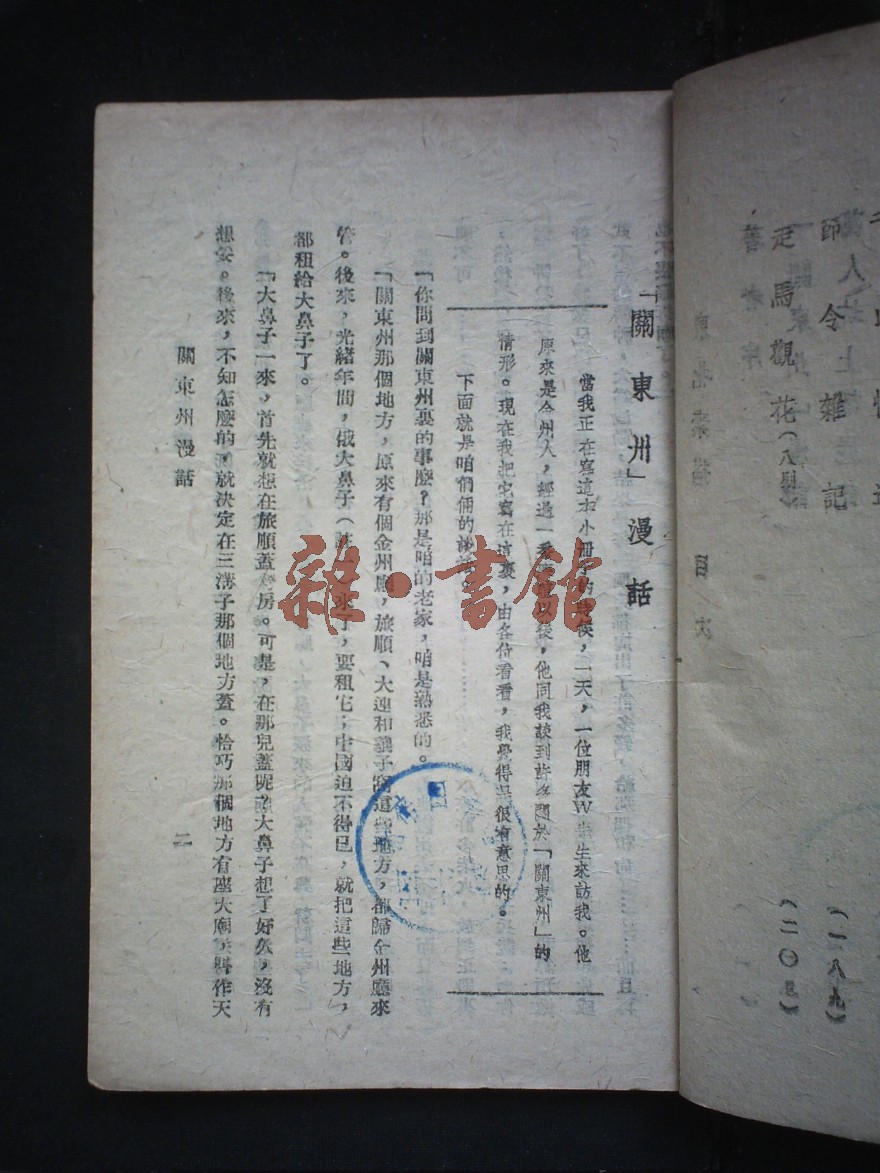 師令雜記
(一八九)
走馬觀花
(二〇
目次
「關東州」漫話
當我正在寫這本小冊子的時候,一天,一位朋友W先生來訪我。他
原來是金州人,經過一番以後,他同我談到許多關於「關東州」的
情形。現在我把它寫在這裏,由各位看看,我覺得是很有意思的。
下面就是咱們倆的談話。
「你問到關東州裏的事麼?那是咱的老家,咱是熟悉的。
「關東州那個地方,原來有個金州廳,旅順、大連和貔子窩這些地方,都歸金州廳來
管。後來,光緒年間,俄大鼻子(註一)來了,要租它;中國迫不得已,就把這些地方,
都租給大鼻子了。
「大鼻子一來,首先就想在旅順蓋房。可是,在那兒蓋呢?大鼻子想了好久,沒有
想妥。後來,不知怎麼的,就決定在三溝子那個地方蓋。恰巧那個地方有座大廟,叫作天
關東州漫話
二
雜·書館